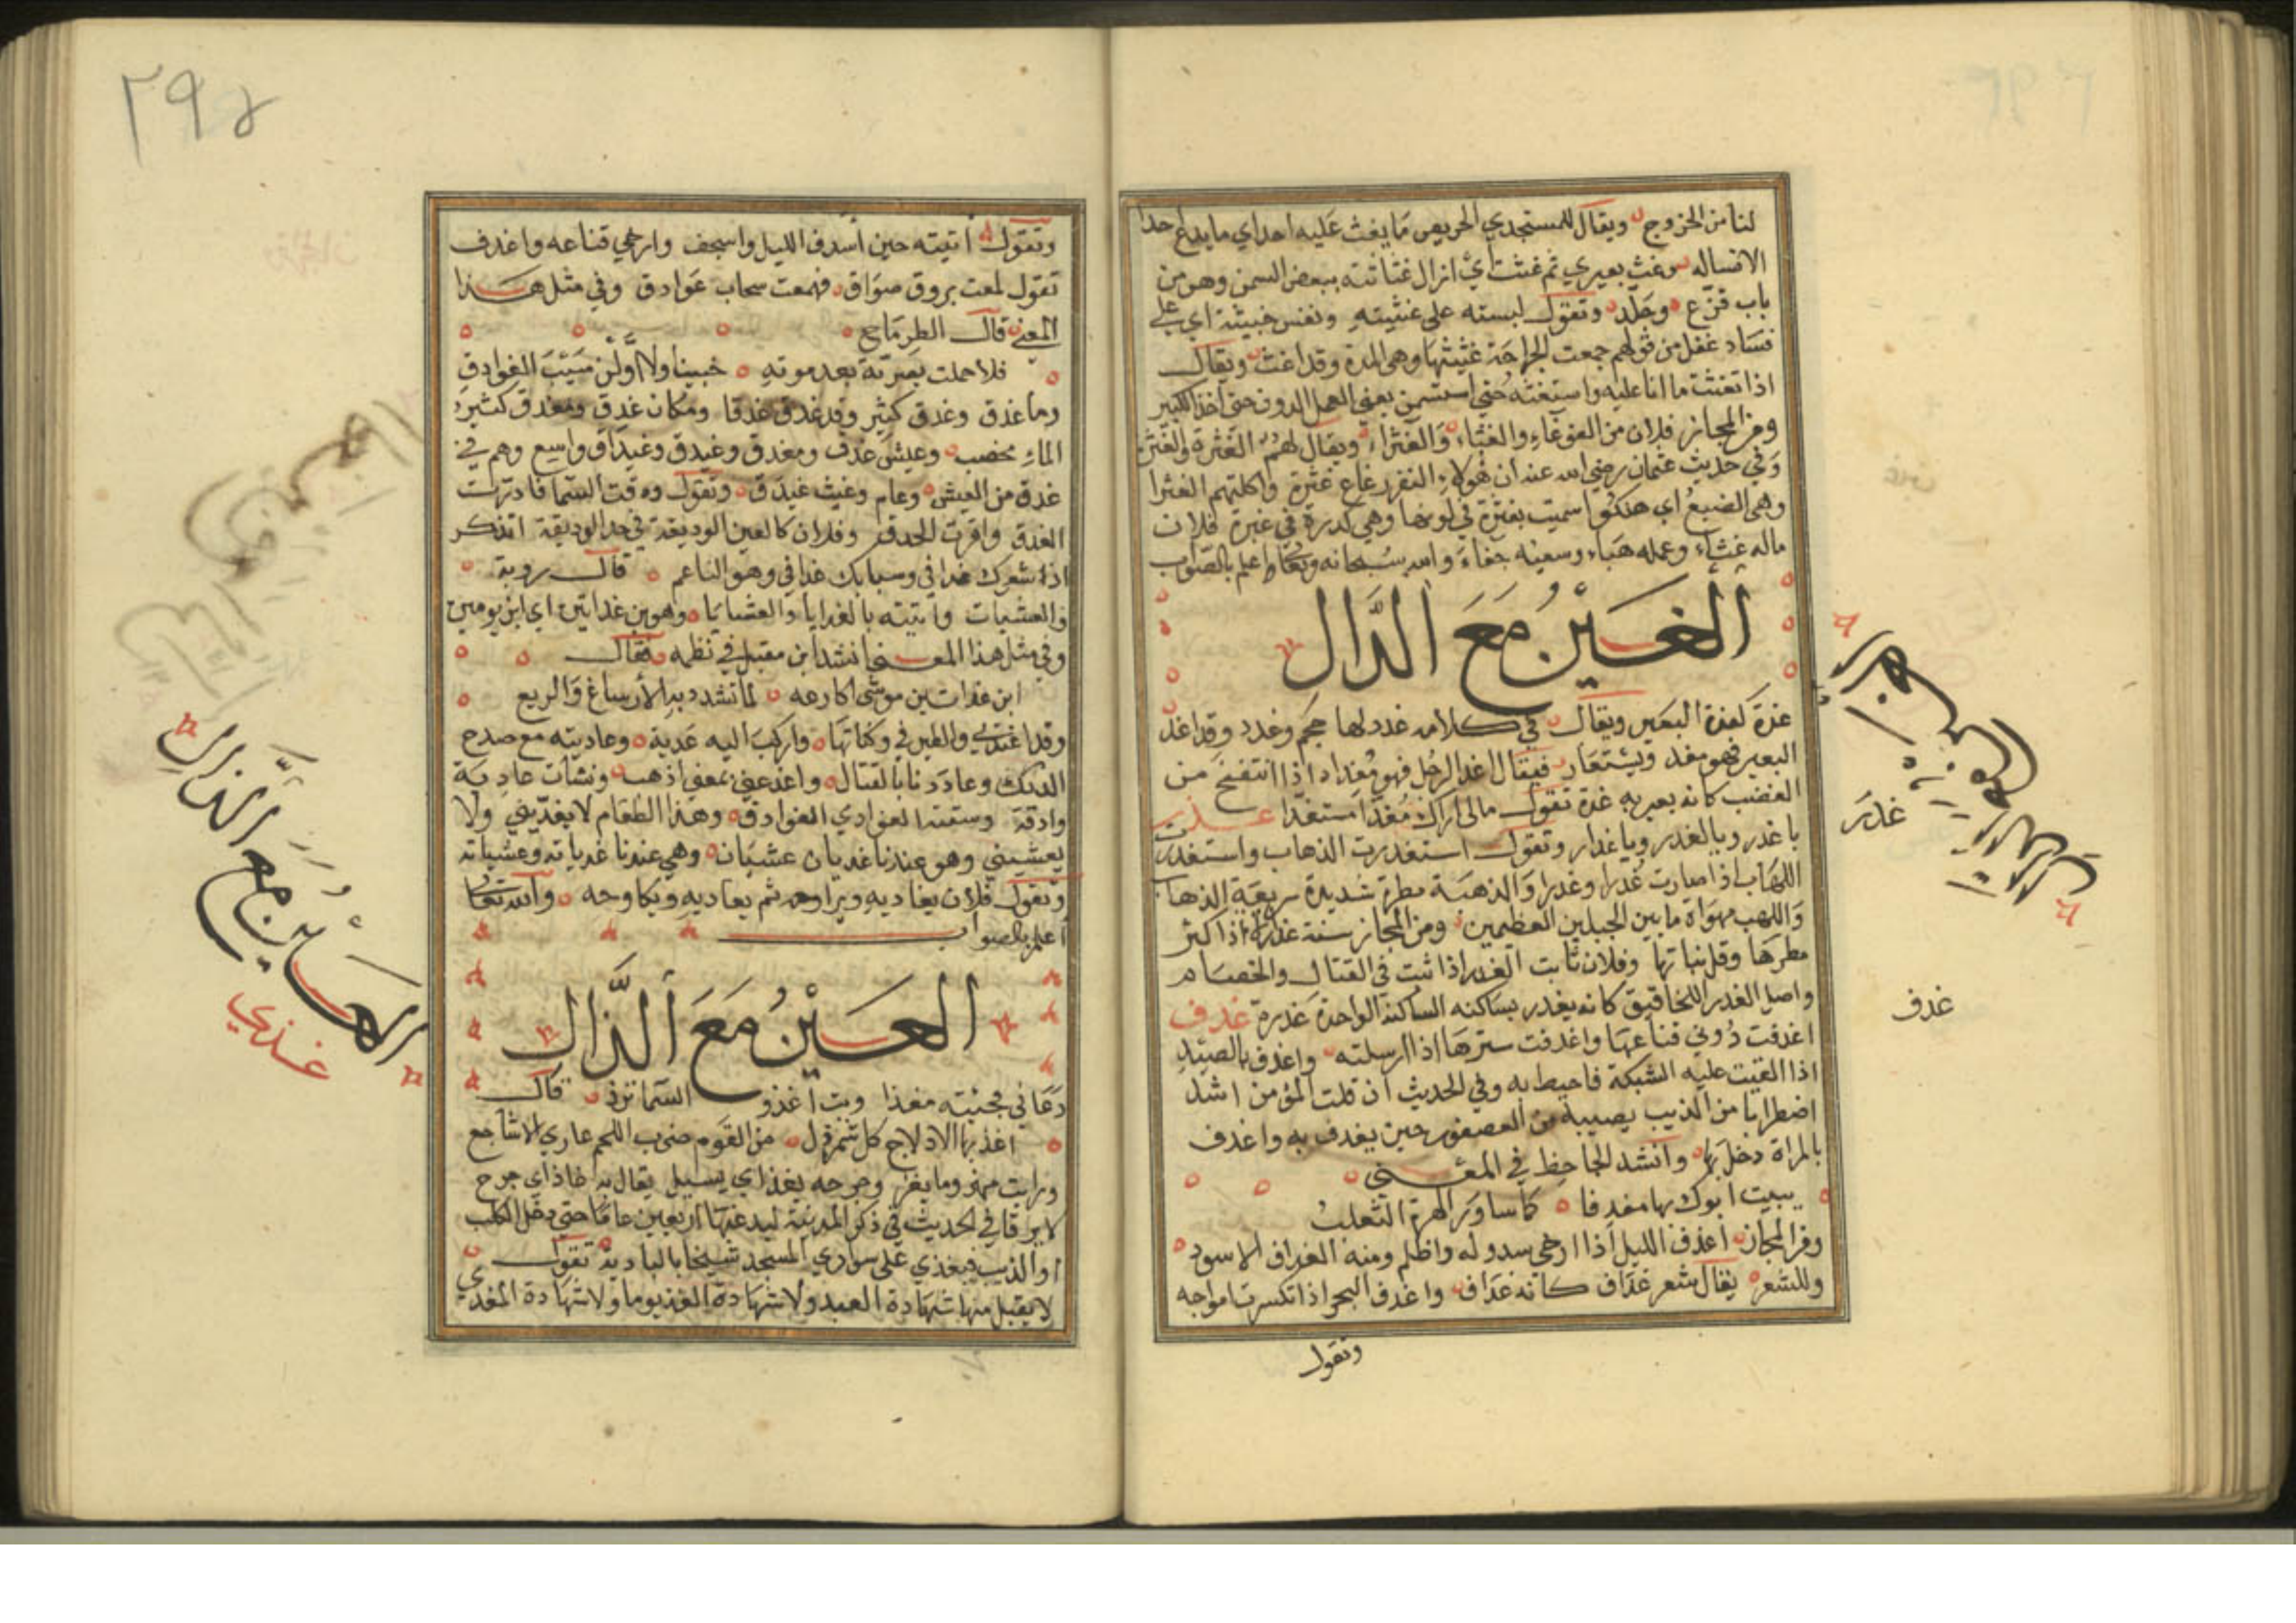 لنا من الخروج ويقال للمستجدي الحريص ما يغث عليه احد اي ما يدع احدا
الا نساله وغث بعيري ثم غثث اي ازال غثاثته ببعض السمن وهو من
باب فزع وجلد وتقول لبسته على غثيثته ونفس خبيثة اي على
فساد عقل من قولهم جمعت الجراحة غثيثها وهي المدة وقد اغث ويقال
اذا تغثث ما انا عليه واستغثه حتى استسمن يعني العمل الدون حتى اخذ الكبير
ومن المجاز فلان من الغوغاء والغثاء والغثراء ويقال لهم الغثرة والغثر
وفي حديث عثمان رضي الله عنه ان هولاء النفر رعاع غثرة واكلتهم الغثرا
وهي الضبع اي هلكوا سميت بغثرة في لونها وهي كدرة في غبرة فلان
ماله غثاء وعمله هباء وسعيه جفاء والله سبحانه وتعالى اعلم بالصواب
الغين مع الدال
غدة كغدة البعير ويقال في كلامه غدد لها حجم وغدد وقد اغد
البعير فهو مغد ويستعار فيقال اغد الرجل فهو مغد اذا انتفخ من
الغضب كانه بعير به غدة تقول مالي اراك مغدا مستغدا غدر
يا غدر ويا لغدر ويا غدار وتقول استغدرت الذهاب واستغدرت
اللهاب اذا صارت غدرا وغدرا والذهبة مطرة شديدة سريعة الذهاب
واللهب مهواة ما بين الجبلين العظيمين ومن المجاز سنة غدارة اذا كثر
مطرها وقل نباتها وفلان ثابت الغدر اذا ثبت في القتال والخصام
واصل الغدر اللخاقيق كانه يغدر بساكنه الساكنة الواحدة غدرة غدف
اغدفت دوني قناعها واغدفت سترها اذا ارسلته واغدف بالصيد
اذا القيت عليه الشبكة فاحيط به وفي الحديث ان قلب المؤمن اشد
اضطرابا من الذنب يصيبه من العصفور حين يغدف به واغدف
بالمراة دخل بها وانشد الجاحظ في المعنى
يبيت ابوك بها مغدفا كما ساور الهرة الثعلب
ومن المجاز اغدف الليل اذا ارخى سدوله واظلم ومنه الغداف الاسود
وللشعر يقال شعر غداف كانه غداف واغدف البحر اذا تكسرت امواجه
وتقول
الغين مع الدال
غدر
غدف
٢٩٤
وتقول اتيته حين اسدف الليل واسجف وارخى قناعه واغدف
تقول لمعت بروق صوادق فهمعت سحاب غوادق وفي مثل هذا
المعنى قال الطرماح
فلا حملت بصرية بعد موته جنينا ولا املن سيب الغوادق
وما غدق وغدق كثير وقد غدق غدقا ومكان غدق ومغدق كثير
الماء مخصب وعيش غدق ومغدق وغيدق وغيداق واسع وهم في
غدق من العيش وعام وغيث غيدق وتقول ودقت السما فادرت
الغدق واقرت الحدق وفلان كالعين الوديعة في حد الوديقة اتذكر
اذ شعرك غدافي وشبابك غدافي وهو الناعم قال روبة
والعشيات واتيته بالغدايا والعشايا وهو ابن غداتين اي ابن يومين
وفي مثل هذا المعنى انشد ابن مقبل في نظمه فقال
ابن غداتين موشى اكارعه لما تشدد به الارساغ والربع
وقد اغتدي والطير في وكناتها واركب اليه غدية وغاديته مع صدح
الديك وغادونا بالقتال واغد عني بمعنى اذهب ونشات غادية
وادقة وسقتنا الغوادي الغوادق وهذا الطعام لا يغديني ولا
يعشيني وهو عندنا غديان عشيان وهي عندنا غديانة وعشيانة
وتقول فلان يغاديه ويراوحه ثم يعاديه ويكاوحه والله تعالى
اعلم بالصواب
الغين مع الذال
دعاني فجئيته مغذا وبت اغذو السما تزف قال
اغذ بها الادلاج كل شمردل من القوم ضرب اللحم عاري الاشاجع
ورايت مهزوما يغذ وجرحه يغذ اي يسيل يقال به غاذ اي جرح
لا يرقا في الحديث في ذكر المدينة ليدعنها اربعين عاما حتى يدخل الكلب
او الذيب فيغذي على سواري المسجد شيخا بالبادية تقول
لا يقبل منها شهادة العبد ولا شهادة الغذيوما ولا شهادة المغذي
الغين مع الذال
غذي